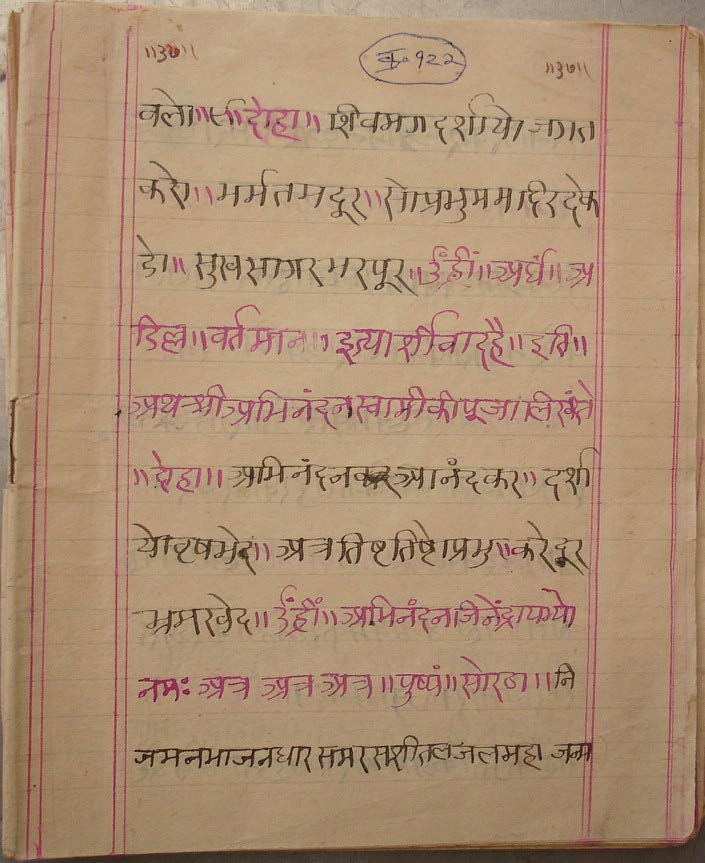 ॥३७॥ पृ. १२२ ॥३७॥
वलो॥ ॥दोहा॥ शिवमग दर्शायो जगत
करो॥ भर्मतमदूर॥ सोप्रभुममहिरदे
डो॥ सुखसागरभरपूर॥ उँह्रीं॥ अर्घं॥ अ
डिल्ल॥ वर्तमान॥ इत्याशीर्वादहै॥ इति॥
अथश्रीअभिनंदनस्वामीकीपूजालिखंते
॥दोहा॥ अभिनंदन आनंदकर॥ दर्शा
योवृषभेद॥ अत्रतिष्टतिष्टोप्रभु॥ करेदूर
भ्रमखेद॥ उँह्रीं॥ अभिनंदनजिनेंद्रायभ्यो
नमः अत्र अत्र अत्र॥ पुष्पं॥ सोरठा॥ नि
जमनभाजनधारसमरसशीतलजलमहा जन्म